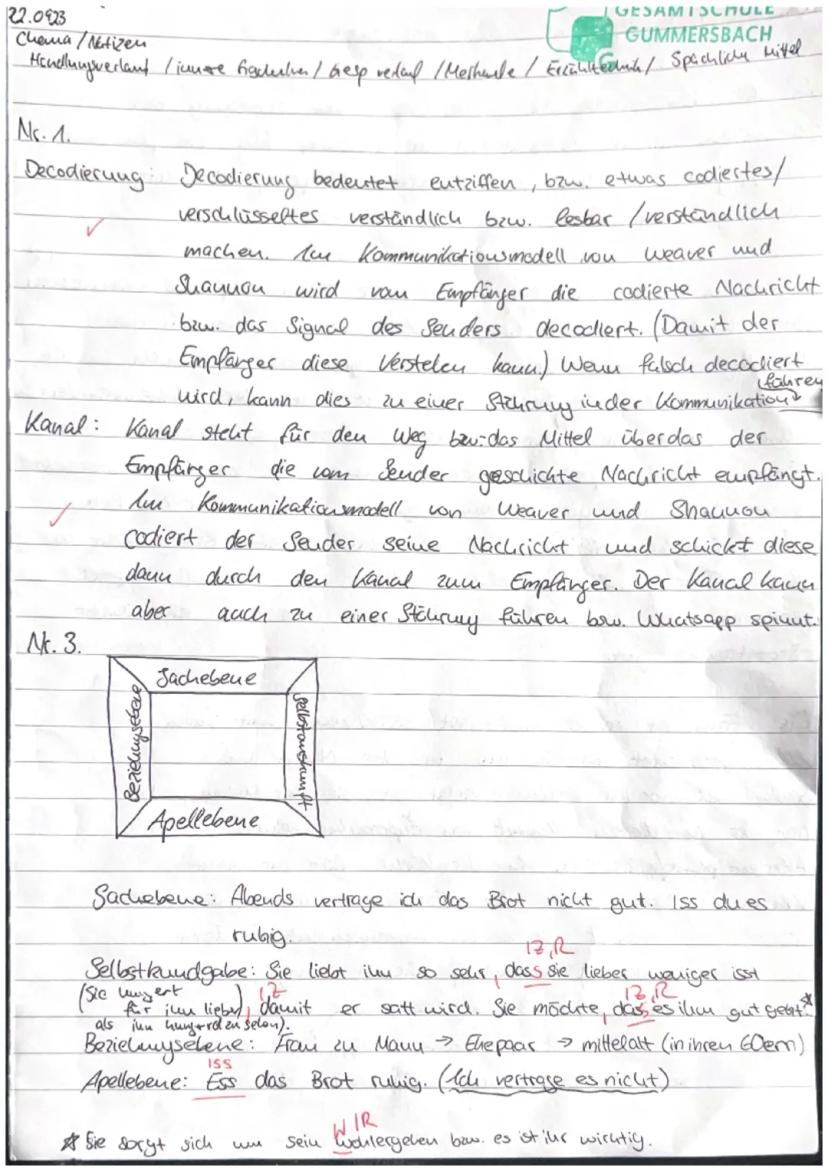 22.0923
GESAMTSCHULE
GUMMERSBACH
Thema / Notizen
Handlungsverlauf / innere / Gesp verlauf / Merkmale / Erzähltechnik / Spachliche Mittel
Nr. 1.
Decodierung: Decodierung bedeutet entziffen, bzw. etwas codiertes/
verschlüsseltes verständlich bzw. lesbar / verständlich
machen. Im Kommunikationsmodell von Weaver und
Shannon wird vom Empfänger die codierte Nachricht
bzw. das Signal des Senders decodiert. (Damit der
Empfänger diese Verstehen kann.) Wenn falsch decodiert
wird, kann dies zu einer Störhrung in der Kommunikation führen
Kanal: Kanal steht für den Weg bzw. das Mittel über das der
Empfänger die vom Sender geschichte Nachricht empfängt.
Im Kommunikationsmodell von Weaver und Shannon
codiert der Sender seine Nachricht und schickt diese
dann durch den Kanal zum Empfänger. Der Kanal kann
aber auch zu einer Störhrung führen bsw. Whatsapp spinnt.
Nr. 3.
Sachebene
Beziehungsebene
Selbstauskunft
Apellebene
Sachebene: Abends vertrage ich das Brot nicht gut. Iss du es
ruhig.
IZ, R
Selbstkundgabe: Sie liebt ihn so sehr, dass sie lieber weniger isst
(Sie hungert für ihn lieber, als ihn hungernd zu sehen).
IZ IZ, R
, damit er satt wird. Sie möchte, dass es ihm gut geht.*
Beziehungsebene: Frau zu Mann → Ehepaar → mittelalt (in ihren 60ern)
iss
Apellebene: Ess das Brot ruhig. (Ich vertrage es nicht)
W IR
* Sie sorgt sich um sein wohlergehen bzw. es ist ihr wichtig.